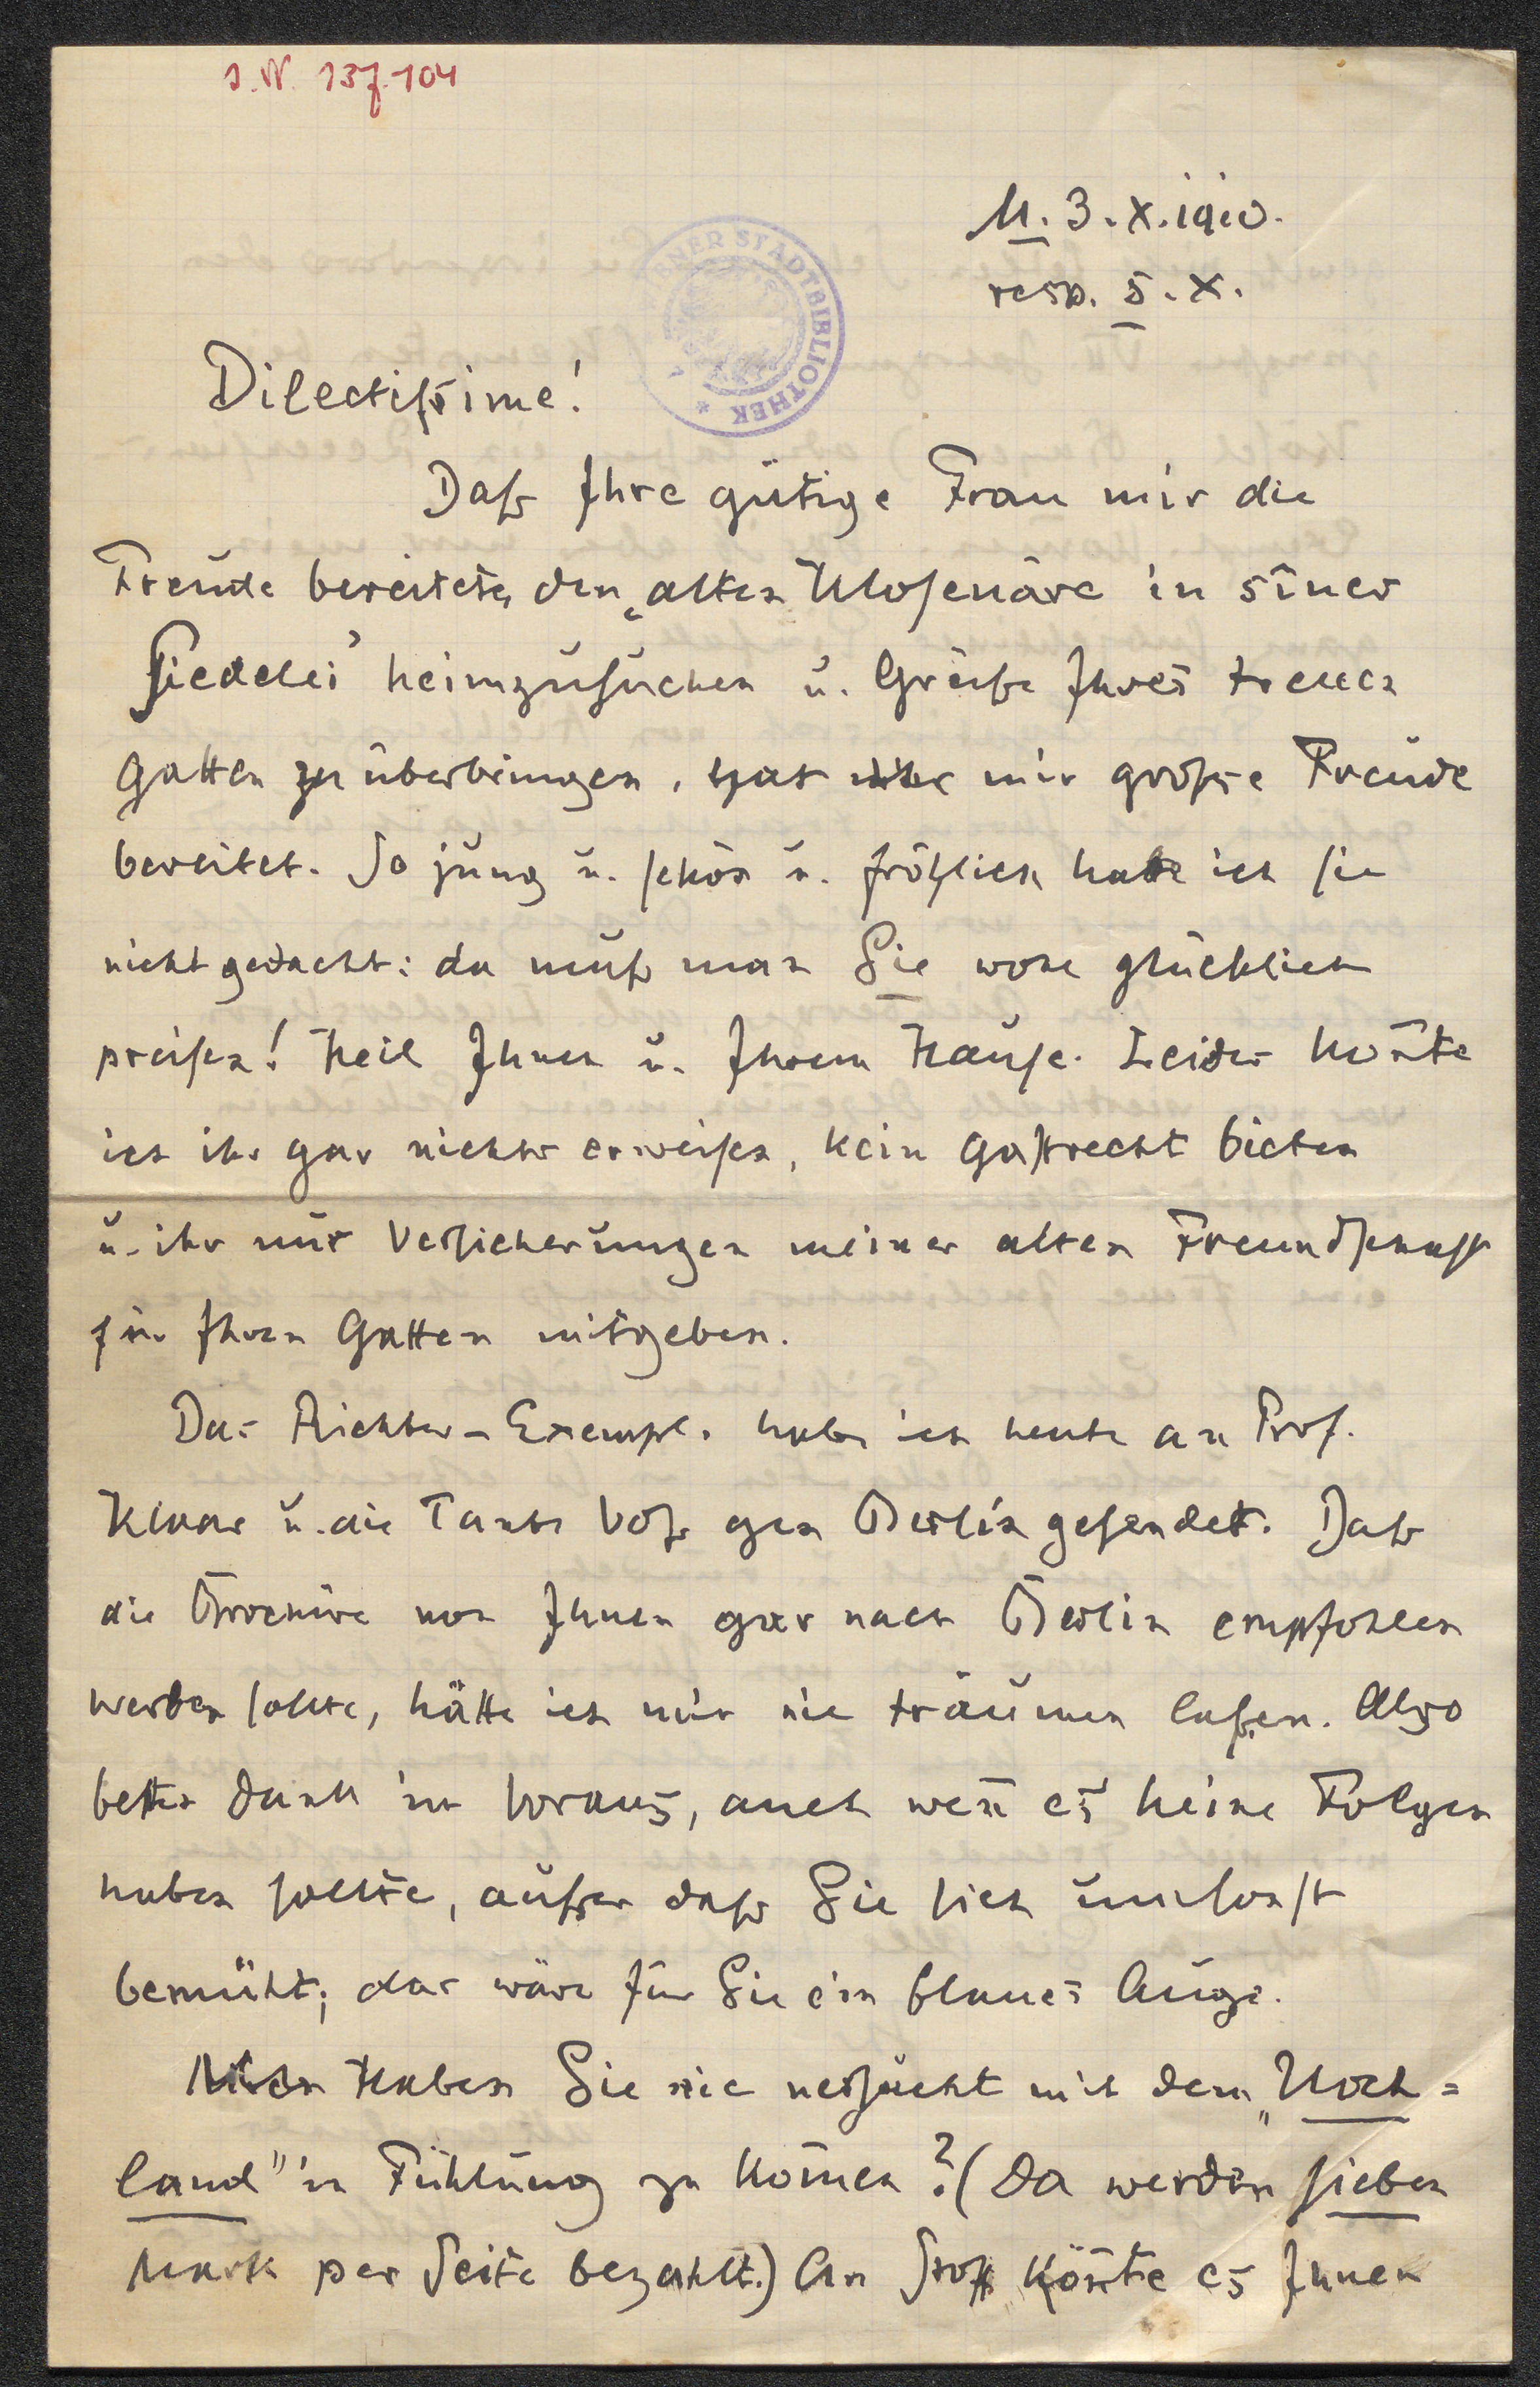 J.N. 137.104
M. 3. X. 1910.
resp. 5. X.
WIENER STADTBIBLIOTHEK *
Dilectissime!
Daß Ihre gütige Frau mir die
Freude bereitete, den „alten Klosenäre in sîner
Siedelei‟ heimzusuchen u. Grüße Ihres treuen
Gatten zu überbringen, hat mir größte Freude
bereitet. So jung u. schön u. fröhlich hatte ich sie
nicht gedacht: da muß man Sie wohl glücklich
preisen! Heil Ihnen u. Ihrem Hause. Leider kon̄te
ich ihr gar nichts erweisen, kein Gastrecht bieten
u. ihr nur Versicherungen meiner alten Freundschaft
für Ihren Gatten mitgeben.
Das Richter-Exempl. habe ich heute an Prof.
Klaar u. die Tante Voß gen Berlin gesendet. Daß
die Brochüre von Ihnen gar nach Berlin empfohlen
werden sollte, hätte ich mir nie träumen laßen. Also
besten Dank im voraus, auch wen̄ es keine Folgen
haben sollte, außer daß Sie sich umsonst
bemüht; das wäre für Sie ein blaues Auge.
Haben Sie nie versucht mit dem „Hoch=
land" in Fühlung zu kom̄en? (Da werden sieben
Mark per Seite bezahlt.) An Stoff kön̄te es Ihnen